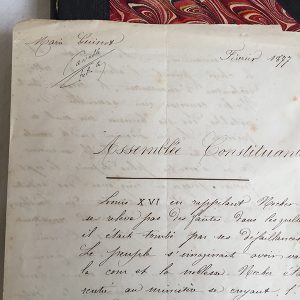 Février 1897
Assemblée Constituant
Louis XVI en rappelant Necker
se relève pas des fautes dans lesquelles
il était tombé par ses défaillances
Le peuple s'imaginait avoir va
la cour et la noblesse Necker éta
rentré au ministère se croyant l